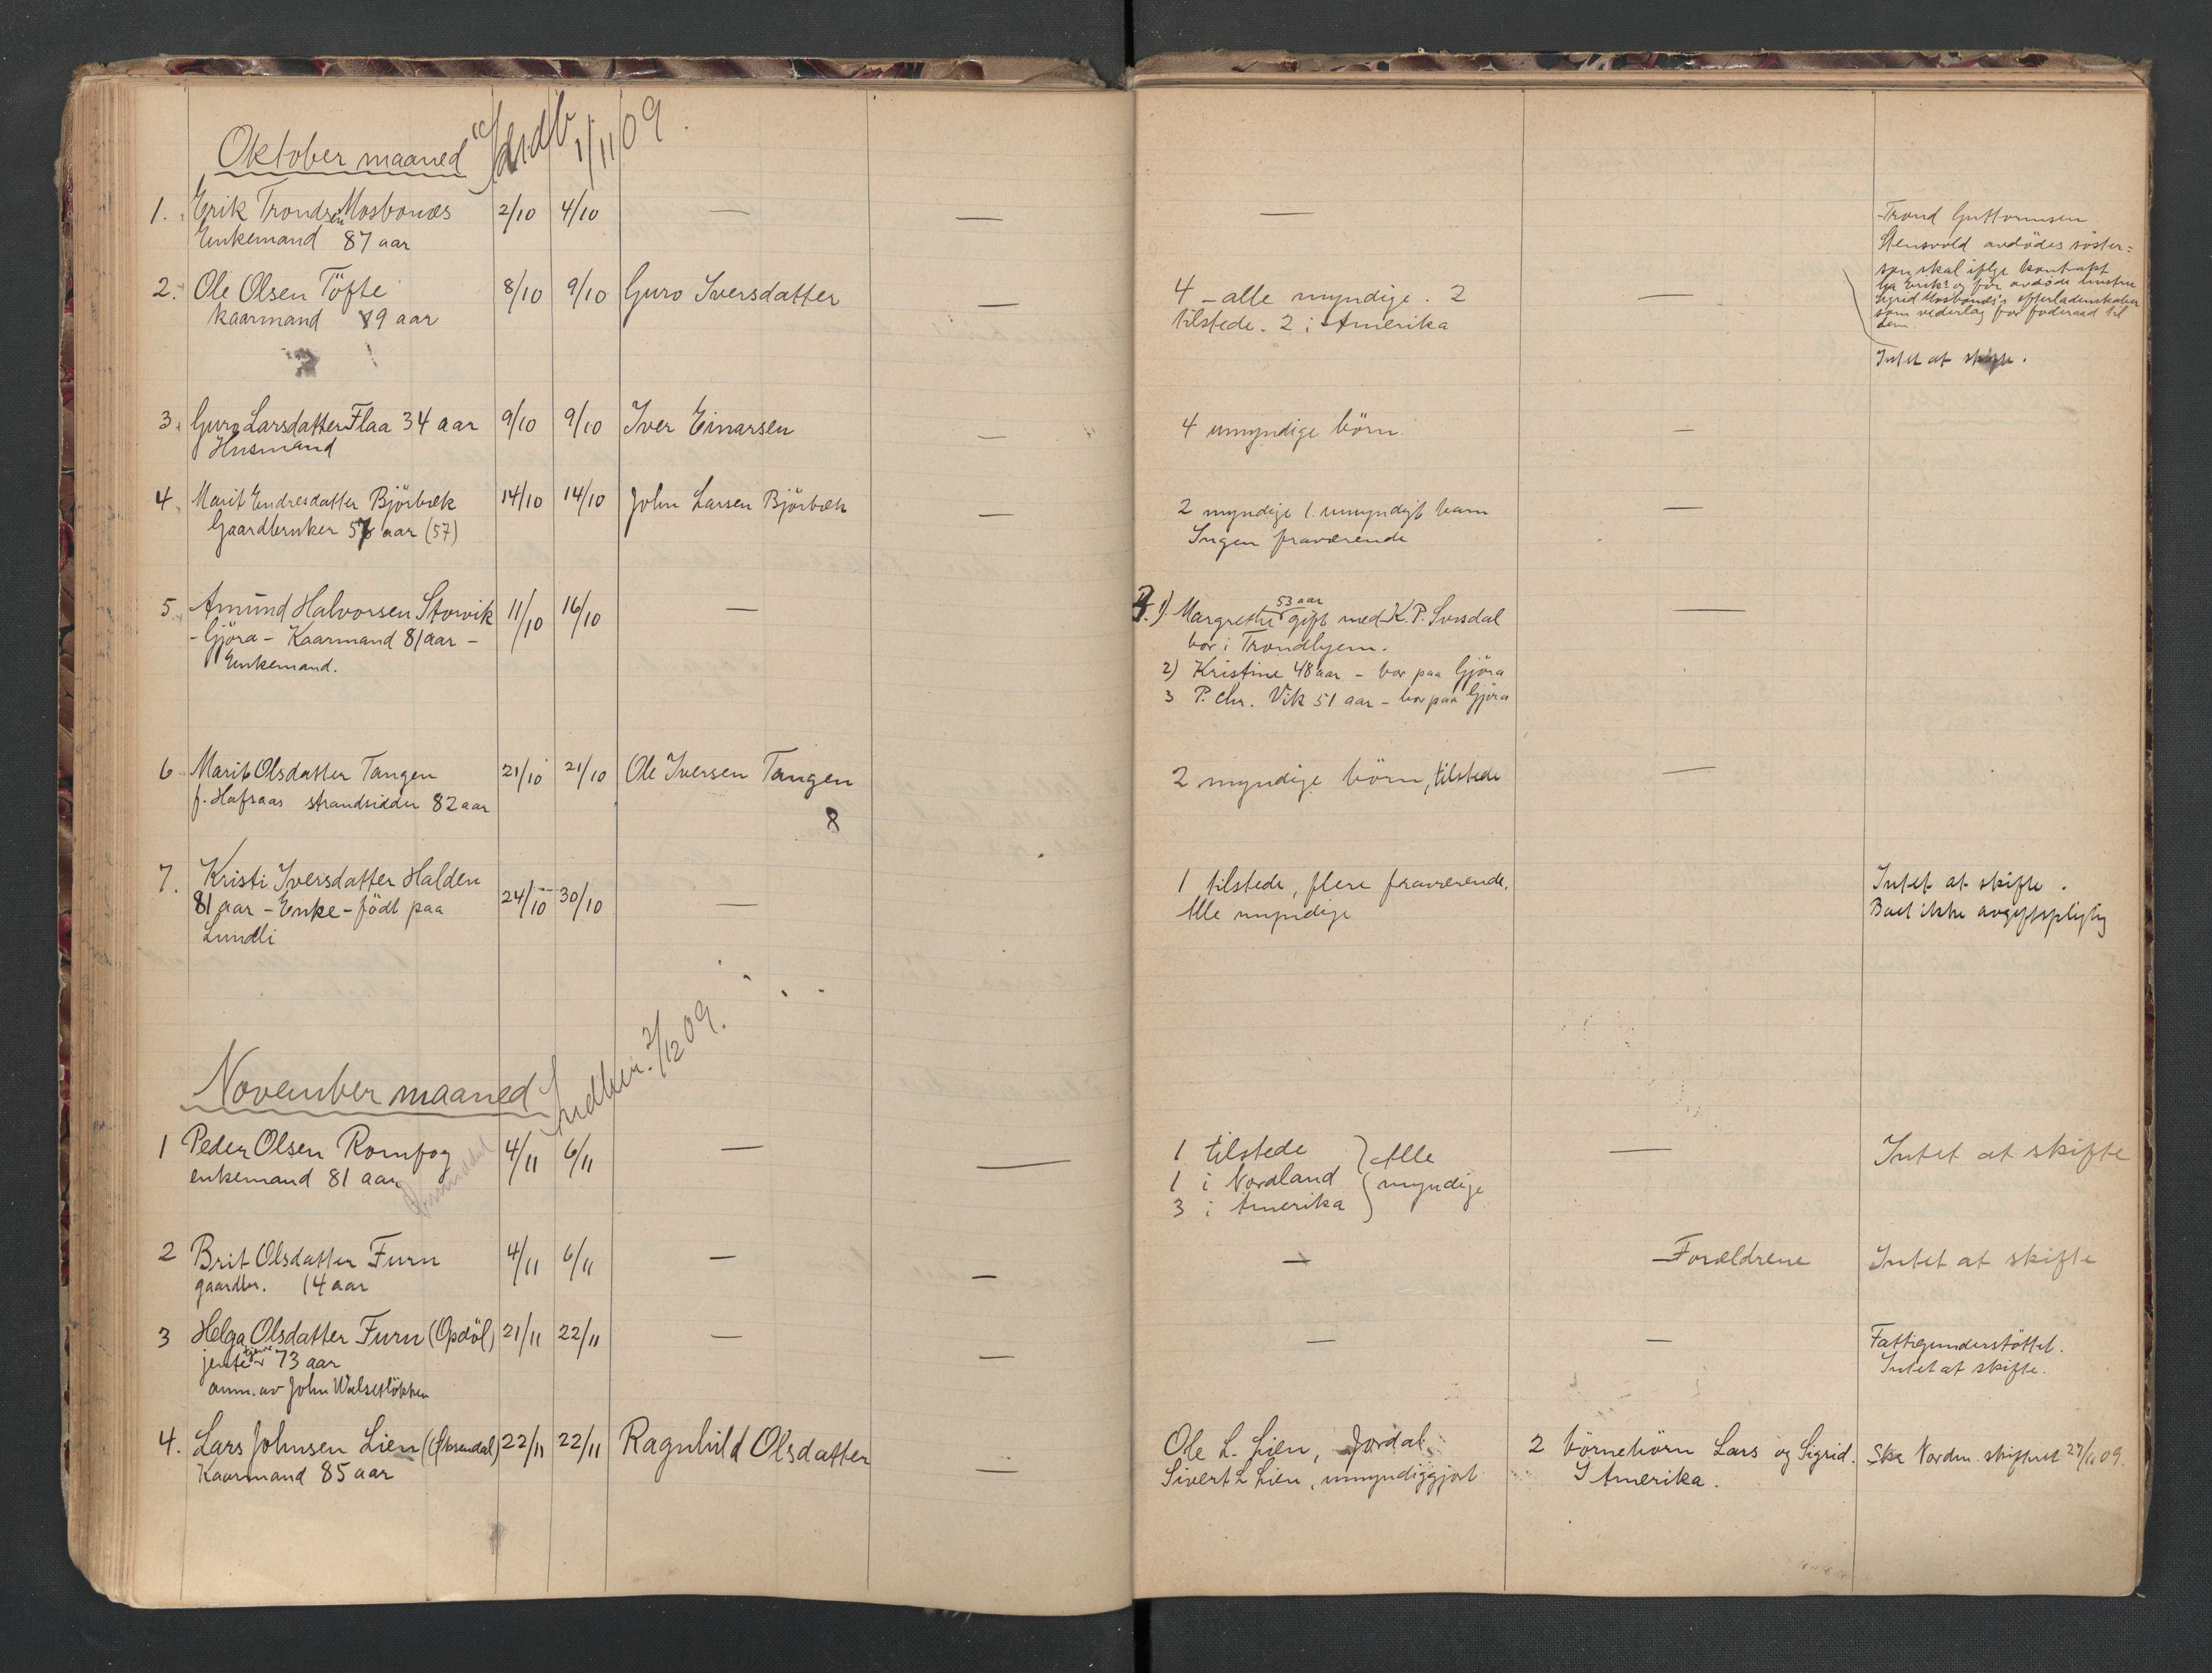 Oktober maaned Indb. 1/11 09.
1. Erik Trondsen Mosbönæs 2/10 4/10 — — — Trond Guttormsen
Enkemand 87 aar Stensvold avdödes söster=
sön skal ifölge kontrakt
ha Eriks og för avdöde hustru
Sigrid Mosbönæs's efterladenskaber
som vederlag for föderaad til
dem.
2. Ole Olsen Töfte 8/10 9/10 Guro Iversdatter — 4 - alle myndige. 2 —
Kaarmand 89 aar tilstede. 2 i Amerika
Intet at skifte.
3. Guro Larsdatter Flaa 34 aar 9/10 9/10 Iver Einarsen — 4 umyndige börn. —
Husmand
4. Marit Endresdatter Björbæk 14/10 14/10 John Larsen Björbæk — 2 myndige 1. umyndigt barn —
Gaardbruker 57 aar (57) Ingen fraværende
5. Amund Halvorsen Storvik 11/10 16/10 — 1). Margrethe 53 aar gift med K. P. Svisdal —
- Gjöra - Kaarmand 81 aar - bor i Trondhjem.
Enkemand. 2) Kristine 48 aar - bor paa Gjöra
3 P. Chr. Vik 51 aar - bor paa Gjöra
6. Marit Olsdatter Tangen 21/10 21/10 Ole Iversen Tangen 2 myndige börn, tilstede —
f. Hafsaas strandsidder 82 aar
8
7. Kristi Iversdatter Halden 1 tilstede, flere fraværende. Intet at skifte.
81 aar - Enke - født paa 24/10 30/10 — Alle myndige Boet ikke avgiftspligtig
Lundli
November maaned Indber. 2/12 09.
1 Peder Olsen Romfog 4/11 6/11 — — 1 tilstede } Alle — Intet at skifte
enkemand 81 aar Grønnddal 1 i Nordland } myndige
3 i Amerika }
2 Brit Olsdatter Furu 4/11 6/11 — — — Forældrene Intet at skifte
gaardbr. 14 aar
3 Helga Olsdatter Furu (Opdöl) 21/11 22/11 — — — — Fattigunderstöttet.
jente 73 aar Intet at skifte.
anm. av John Walsetlökken
4. Lars Johnsen Lien (Øksendal) 22/11 22/11 Ragnhild Olsdatter — Ole L. Lien, Jordal 2 börnebörn Lars og Sigrid. Ska Nordm. skifteret 27/11 09.
Kaarmand 85 aar Sivert L Lien, umyndiggjort I Amerika.